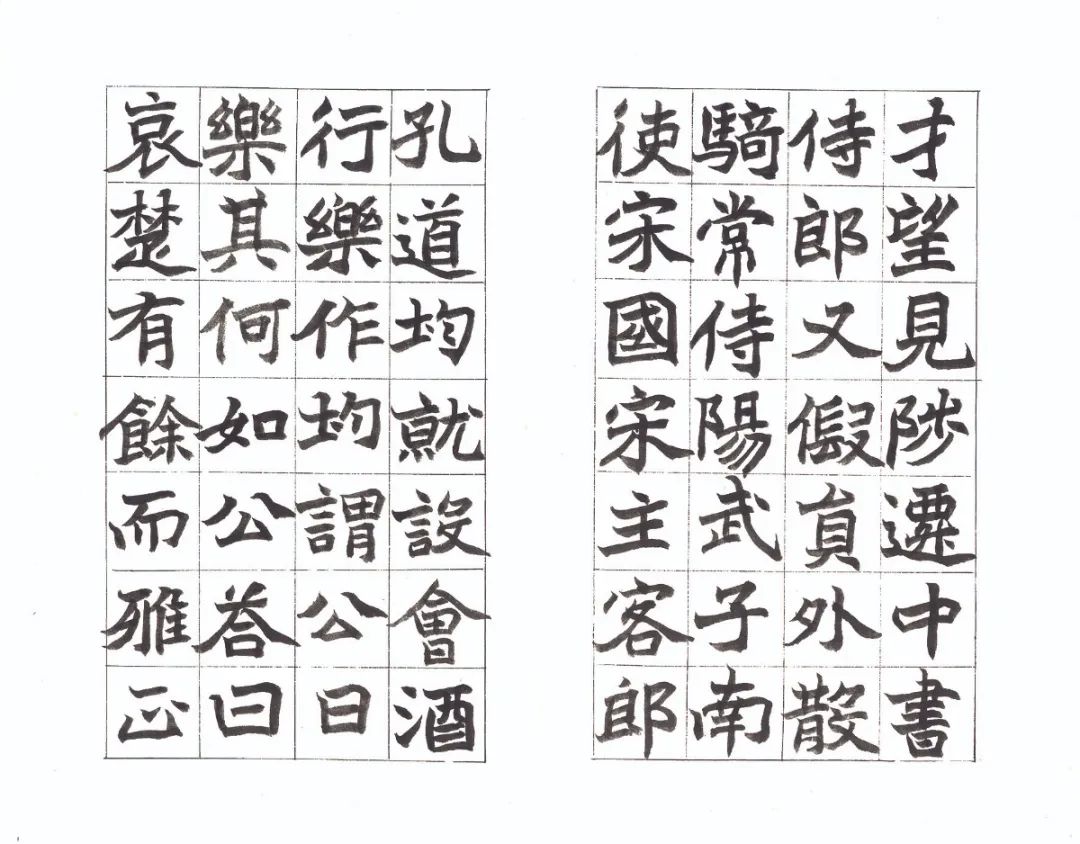 才望見陟遷中書
侍郎又假員外散
騎常侍陽武子南
使宋國宋主客郎
孔道均就設會酒
行樂作均謂公曰
樂其何如公荅曰
哀楚有餘而雅正